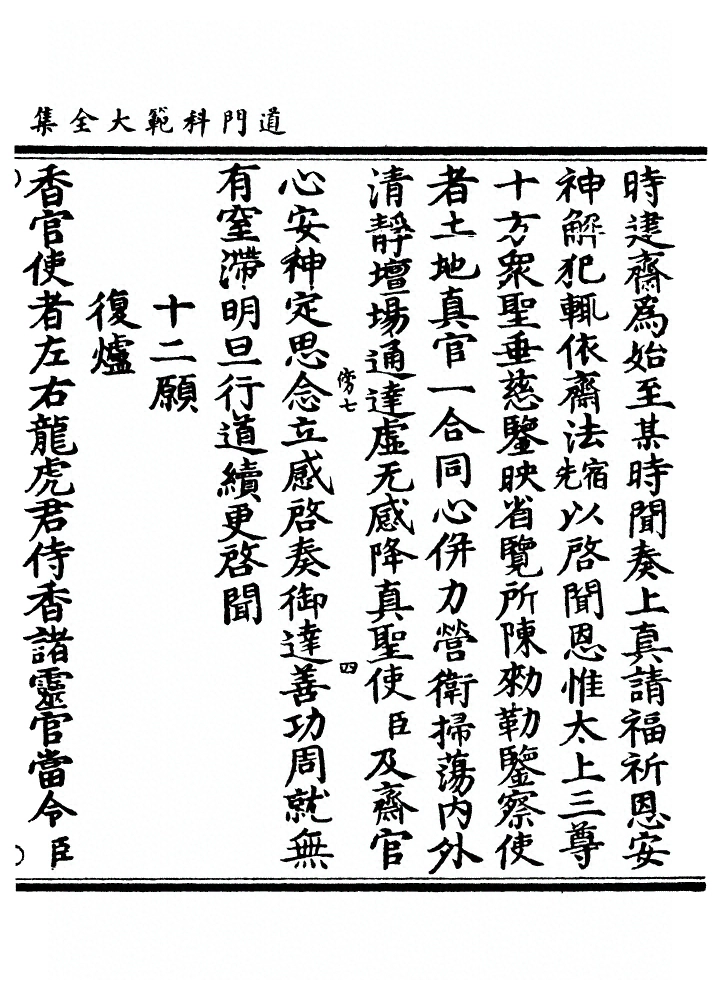 道門科範大全集
時建齋爲始至某時聞奏上真請福祈恩安
神解犯輒依齋法宿先以啓聞恩惟太上三尊
十方衆聖垂慈鑒映省覽所陳勑勒鑒察使
者土地真官一合同心併力營衛掃蕩內外
清靜壇場通達虛无感降真聖使臣及齋官
傍七
四
心安神定思念立感啓奏御達善功周就無
有窒滯明旦行道續更啓聞
十二願
復爐
香官使者左右龍虎君侍香諸靈官當令臣